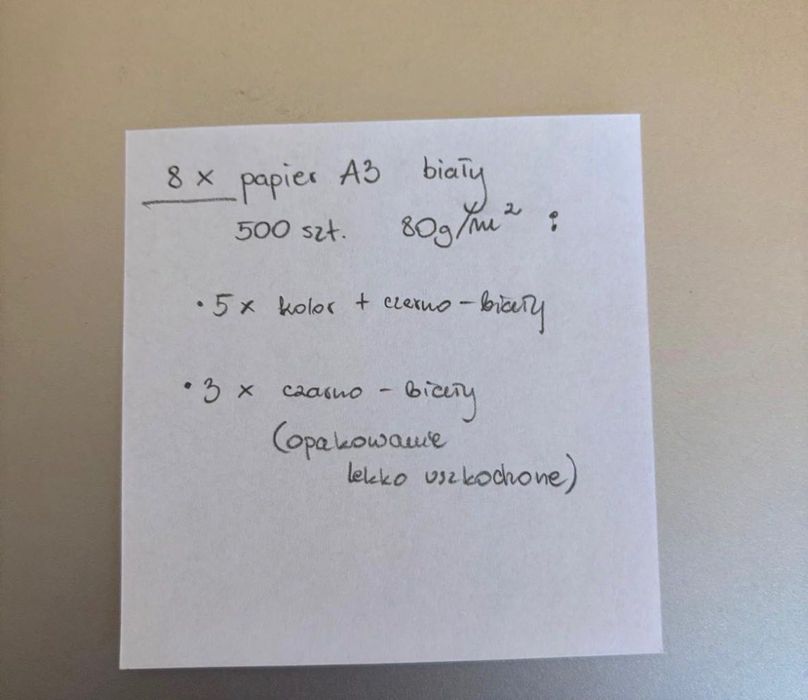 8 x papier A3 biały
500 szt. 80g/m² :
• 5 x kolor + czarno - biały
• 3 x czarno - biały
(opakowanie
lekko uszkodzone)